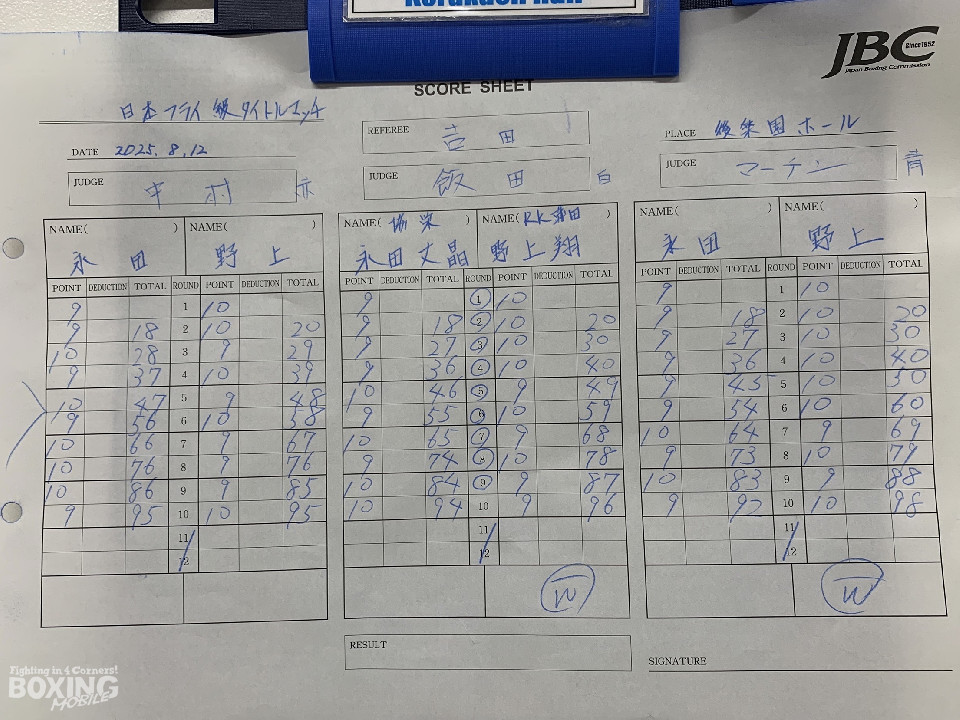 Korakuen Hall
JBC Since 1952
Japan Boxing Commission
SCORE SHEET
日本フライ級タイトルマッチ
DATE 2025.8.12
REFEREE 吉田
PLACE 後楽園ホール
JUDGE 中村 赤
JUDGE 飯田 白
JUDGE マーチン 青
NAME( ) NAME( )
永田 野上
POINT DEDUCTION TOTAL ROUND POINT DEDUCTION TOTAL
9 1 10
9 18 2 10 20
10 28 3 9 29
9 37 4 10 39
10 47 5 9 48
9 56 6 10 58
10 66 7 9 67
10 76 8 9 76
10 86 9 9 85
9 95 10 10 95
11
12
NAME( 協栄 ) NAME( RK蒲田 )
永田丈晶 野上翔
POINT DEDUCTION TOTAL ROUND POINT DEDUCTION TOTAL
9 1 10
9 18 2 10 20
9 27 3 10 30
9 36 4 10 40
10 46 5 9 49
9 55 6 10 59
10 65 7 9 68
9 74 8 10 78
10 84 9 9 87
10 94 10 9 96
11
12
W
NAME( ) NAME( )
永田 野上
POINT DEDUCTION TOTAL ROUND POINT DEDUCTION TOTAL
9 1 10
9 18 2 10 20
9 27 3 10 30
9 36 4 10 40
9 45 5 10 50
9 54 6 10 60
10 64 7 9 69
9 73 8 10 79
10 83 9 9 88
9 92 10 10 98
11
12
W
RESULT
SIGNATURE
Fighting in 4 Corners!
BOXING
MOBILE